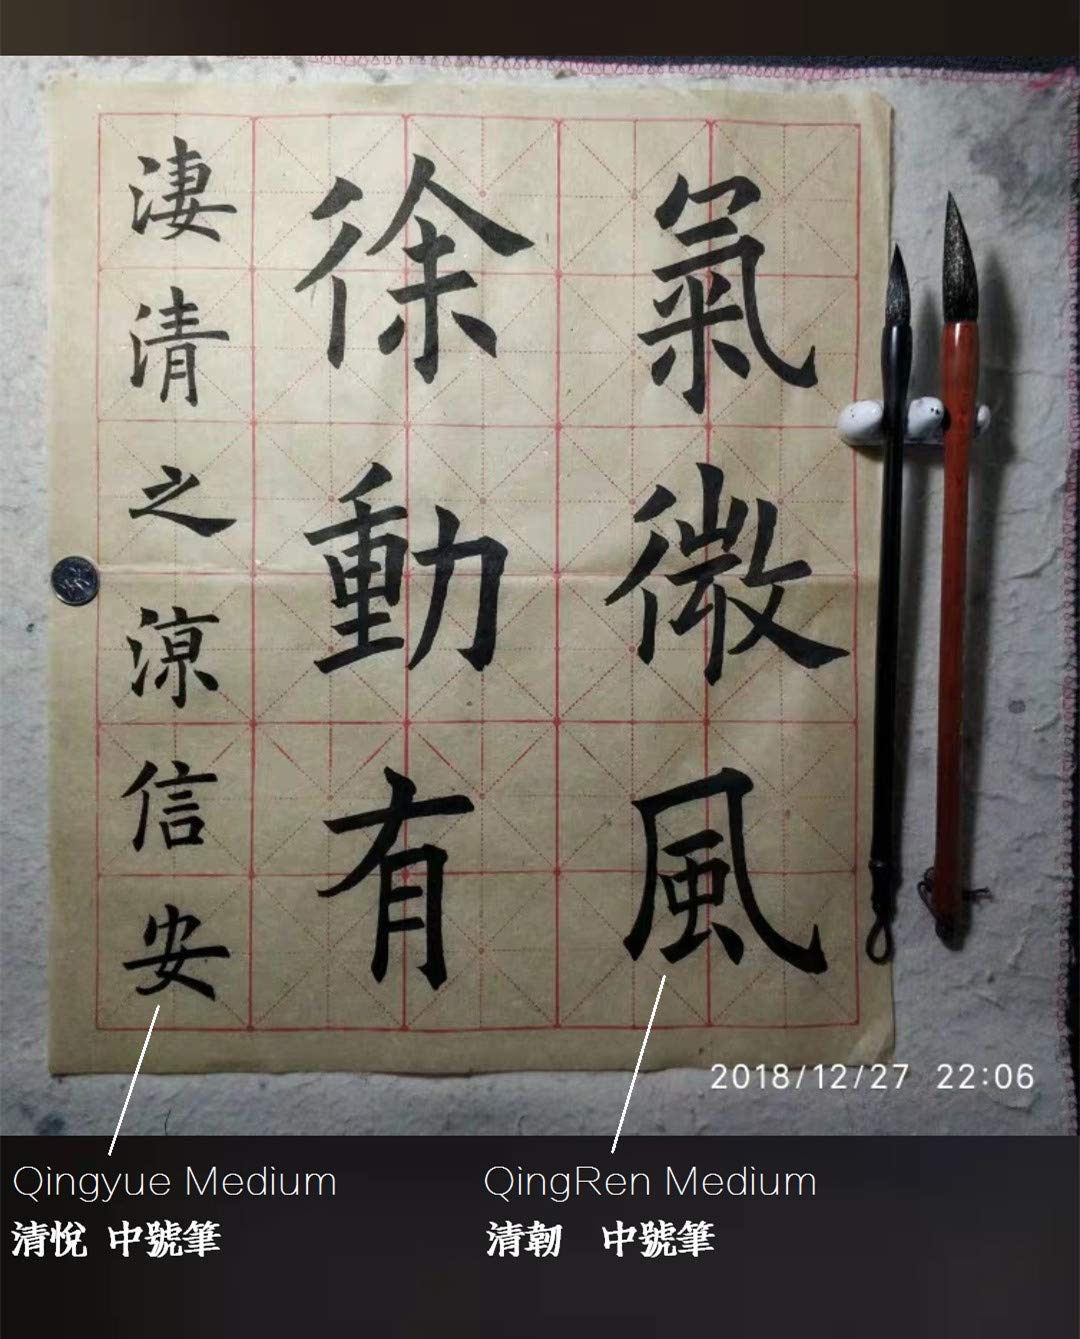 氣微風
徐動有
淒清之涼信安
2018/12/27 22:06
Qingyue Medium
清悅 中號筆
QingRen Medium
清韌 中號筆